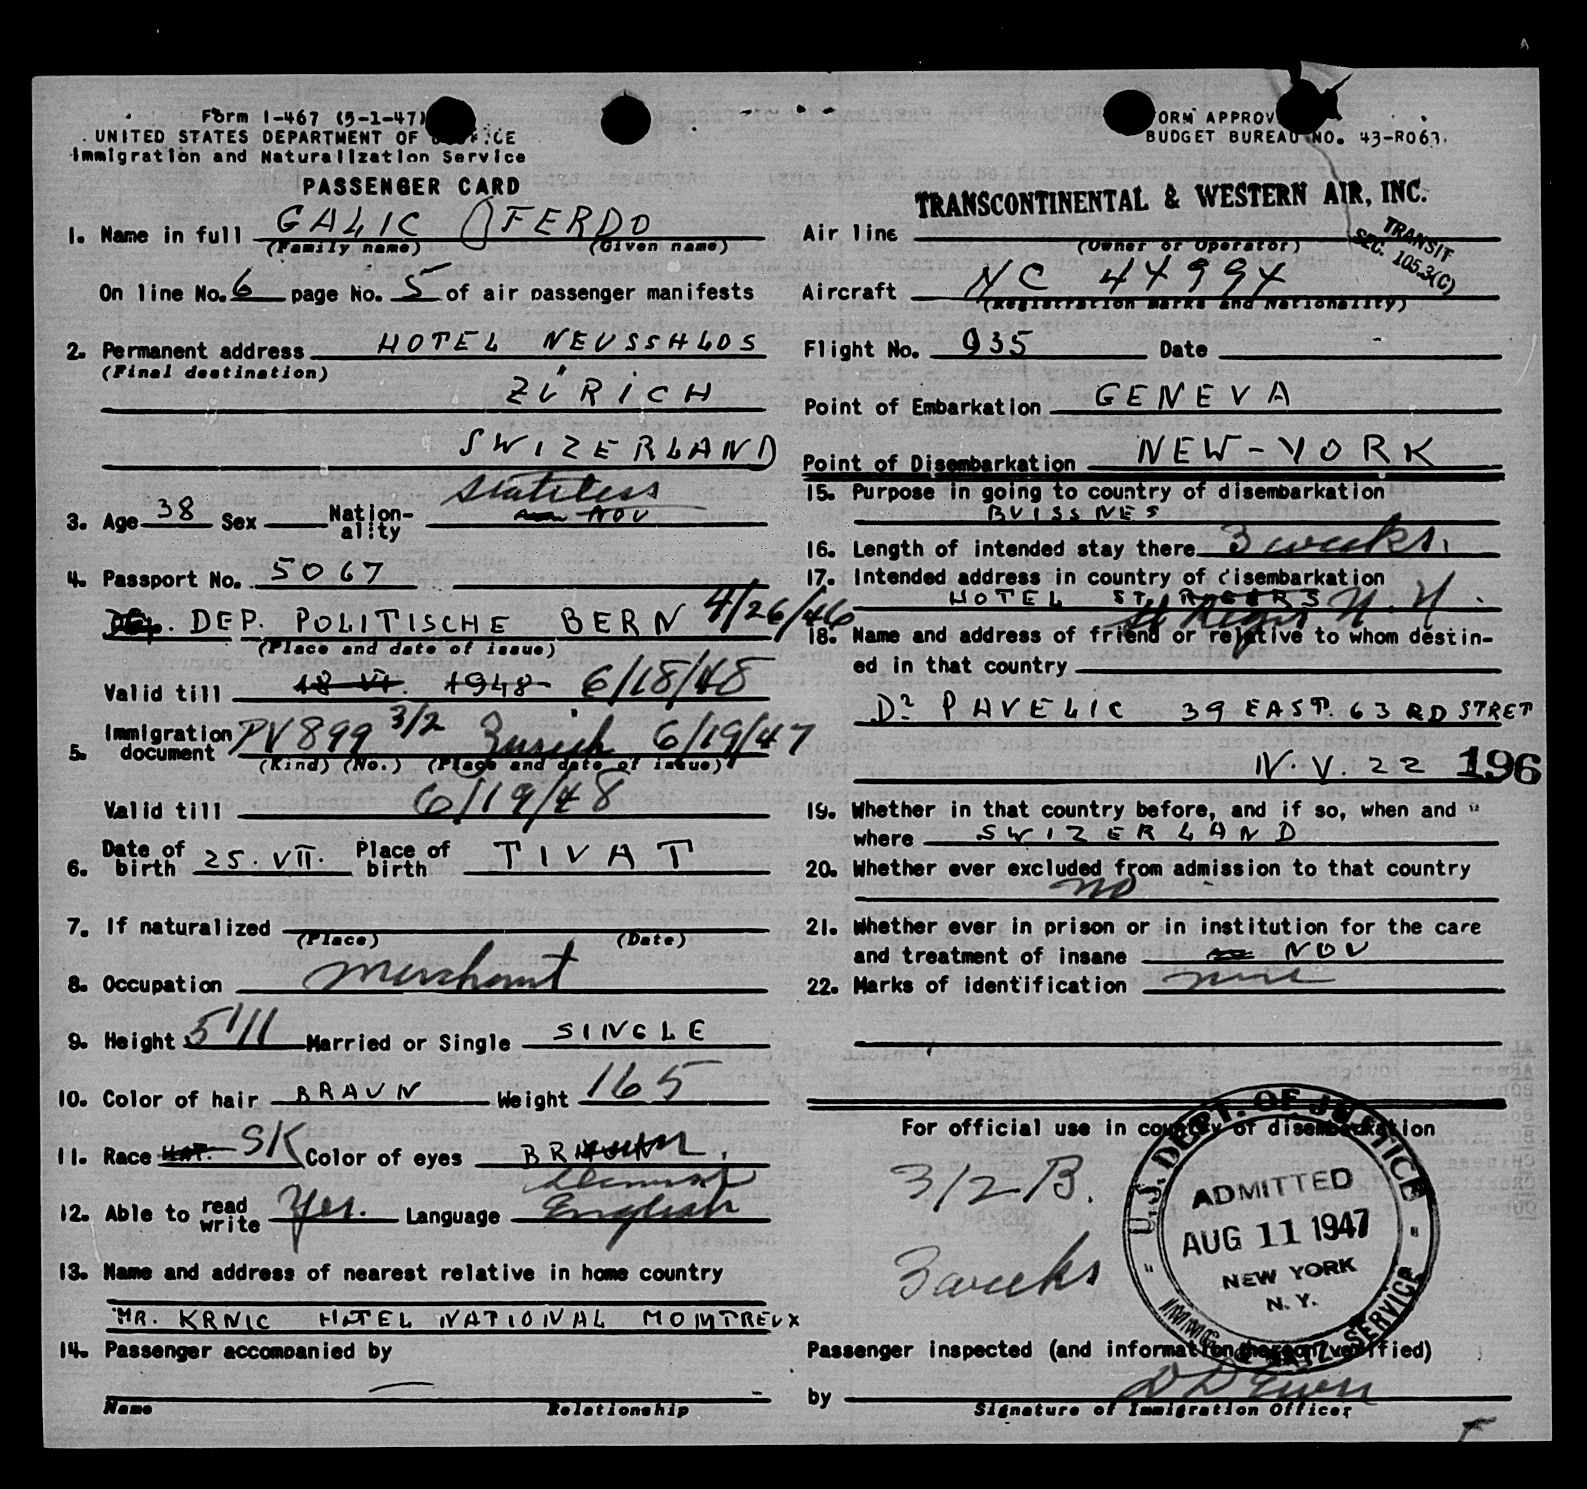 Form I-467 (5-1-47)
UNITED STATES DEPARTMENT OF
Immigration and Naturalization Service
PASSENGER CARD
1. Name in full GALIC FERDO
(Family name) (Given name)
On line No. 6 page No. 5 of air passenger manifests
2. Permanent address HOTEL NEUSSHLOS
(Final destination)
ZÜRICH
SWIZERLAND
stateless
3. Age 38 Sex Nation-ality NOV
4. Passport No. 5067
DEP. POLITISCHE BERN 4/26/46
(Place and date of issue)
Valid till 18 VI. 1948 6/18/48
5. Immigration document PV 899 3/2 Zurich 6/19/47
(Kind) (No.) (Place and date of issue)
Valid till 6/19/48
6. Date of birth 25. VII. Place of birth TIVAT
7. If naturalized
(Place) (Date)
8. Occupation merchant
9. Height 5'11 Married or Single SINGLE
10. Color of hair BRAUN Weight 165
11. Race SK Color of eyes
12. Able to read write Yes. Language English
13. Name and address of nearest relative in home country
MR. KRNIC HOTEL NATIONAL MOMTREUX
14. Passenger accompanied by
Name Relationship
FORM APPROV
BUDGET BUREAU NO. 43-R063.
TRANSCONTINENTAL & WESTERN AIR, INC.
Air line
(Owner or Operator)
TRANSIT
SEC. 105.3(C)
Aircraft NC 44994
(Registration marks and Nationality)
Flight No. 935 Date
Point of Embarkation GENEVA
Point of Disembarkation NEW-YORK
15. Purpose in going to country of disembarkation
BUISSNES
16. Length of intended stay there 3 weeks.
17. Intended address in country of disembarkation
HOTEL ST. ROGERS N.Y.
St Regis
18. Name and address of friend or relative to whom destin-
ed in that country
Dr PAVELIC 39 EAST. 63 RD STRET
N.V. 22 196
19. Whether in that country before, and if so, when and
where SWIZERLAND
20. Whether ever excluded from admission to that country
no
21. Whether ever in prison or in institution for the care
and treatment of insane NOV
22. Marks of identification none
For official use in country of disembarkation
3/2 B.
3 weeks
U.S. DEPT. OF JUSTICE
ADMITTED
AUG 11 1947
NEW YORK
N.Y.
IMMIG. & NATZ. SERVICE
Passenger inspected (and information thereon verified)
by
Signature of Immigration Officer